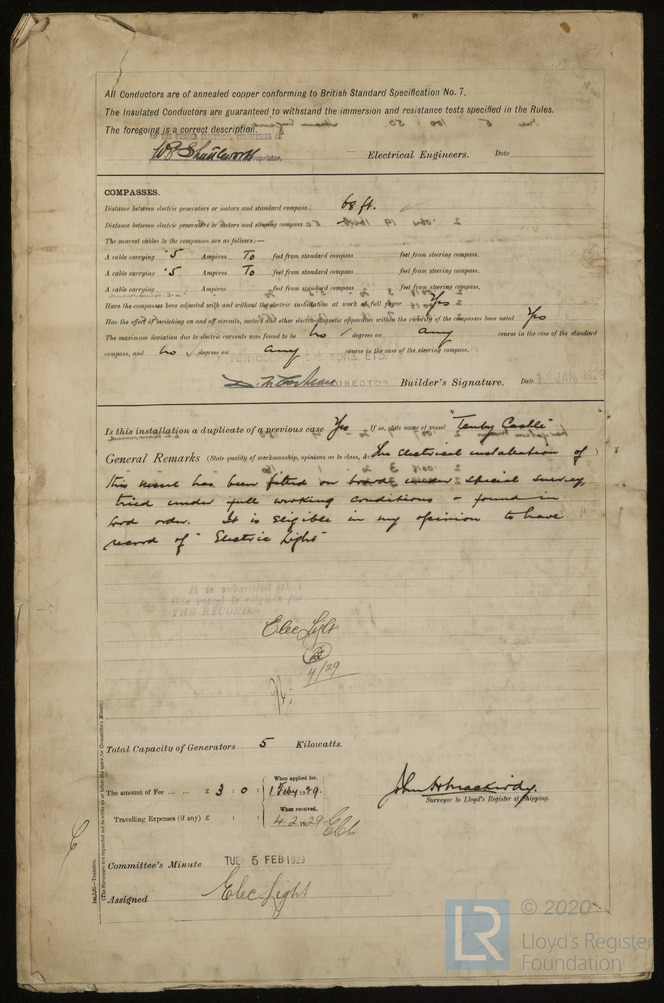 All Conductors are of annealed copper conforming to British Standard Specification No. 7.
The Insulated Conductors are guaranteed to withstand the immersion and resistance tests specified in the Rules.
The foregoing is a correct description.
Electrical Engineers. Date
COMPASSES.
Distance between electric generators or motors and standard compass 68 ft.
Distance between electric generators or motors and steering compass
The nearest cables to the compasses are as follows:—
A cable carrying .5 Ampères To feet from standard compass feet from steering compass.
A cable carrying .5 Ampères To feet from standard compass feet from steering compass.
A cable carrying Ampères feet from standard compass feet from steering compass.
Have the compasses been adjusted with and without the electric installation at work at full power Yes
Has the effect of switching on and off circuits, motors and other electro-magnetic apparatus within the vicinity of the compasses been noted Yes
The maximum deviation due to electric currents was found to be no degrees on any course in the case of the standard
compass, and no degrees on any course in the case of the steering compass.
DIRECTOR Builder's Signature. Date JAN. 1929
Is this installation a duplicate of a previous case Yes If so, state name of vessel "Tenby Castle"
General Remarks (State quality of workmanship, opinions as to class, &c. The electrical installation of )
this vessel has been fitted on board under special survey,
tried under full working conditions & found in
good order. It is eligible in my opinion to have
record of "Electric Light"
It is submitted that
this vessel is eligible for
THE RECORD.
Elec Light
4/29
Total Capacity of Generators 5 Kilowatts.
The amount of Fee ... ... £ 3 : 0 : When applied for, 1 Feby 1929.
Travelling Expenses (if any) £ : : When received, 4.2.1929
Surveyor to Lloyd's Register of Shipping.
Committee's Minute TUE 5 FEB 1929
Assigned Elec Light
Im.1.28.—Transfer.
(The Surveyors are requested not to write on or below the space for Committee's Minute.)
LR © 2020
Lloyd's Register
Foundation